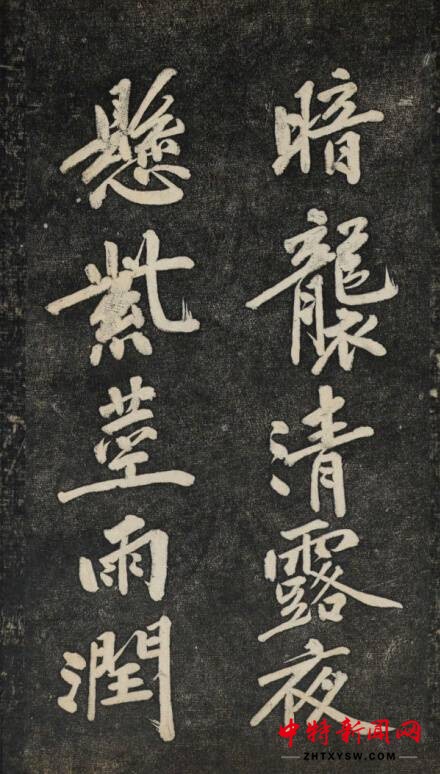 暗襲清露夜
懸紫莖雨潤
中特新闻网
ZHTXYSW.COM